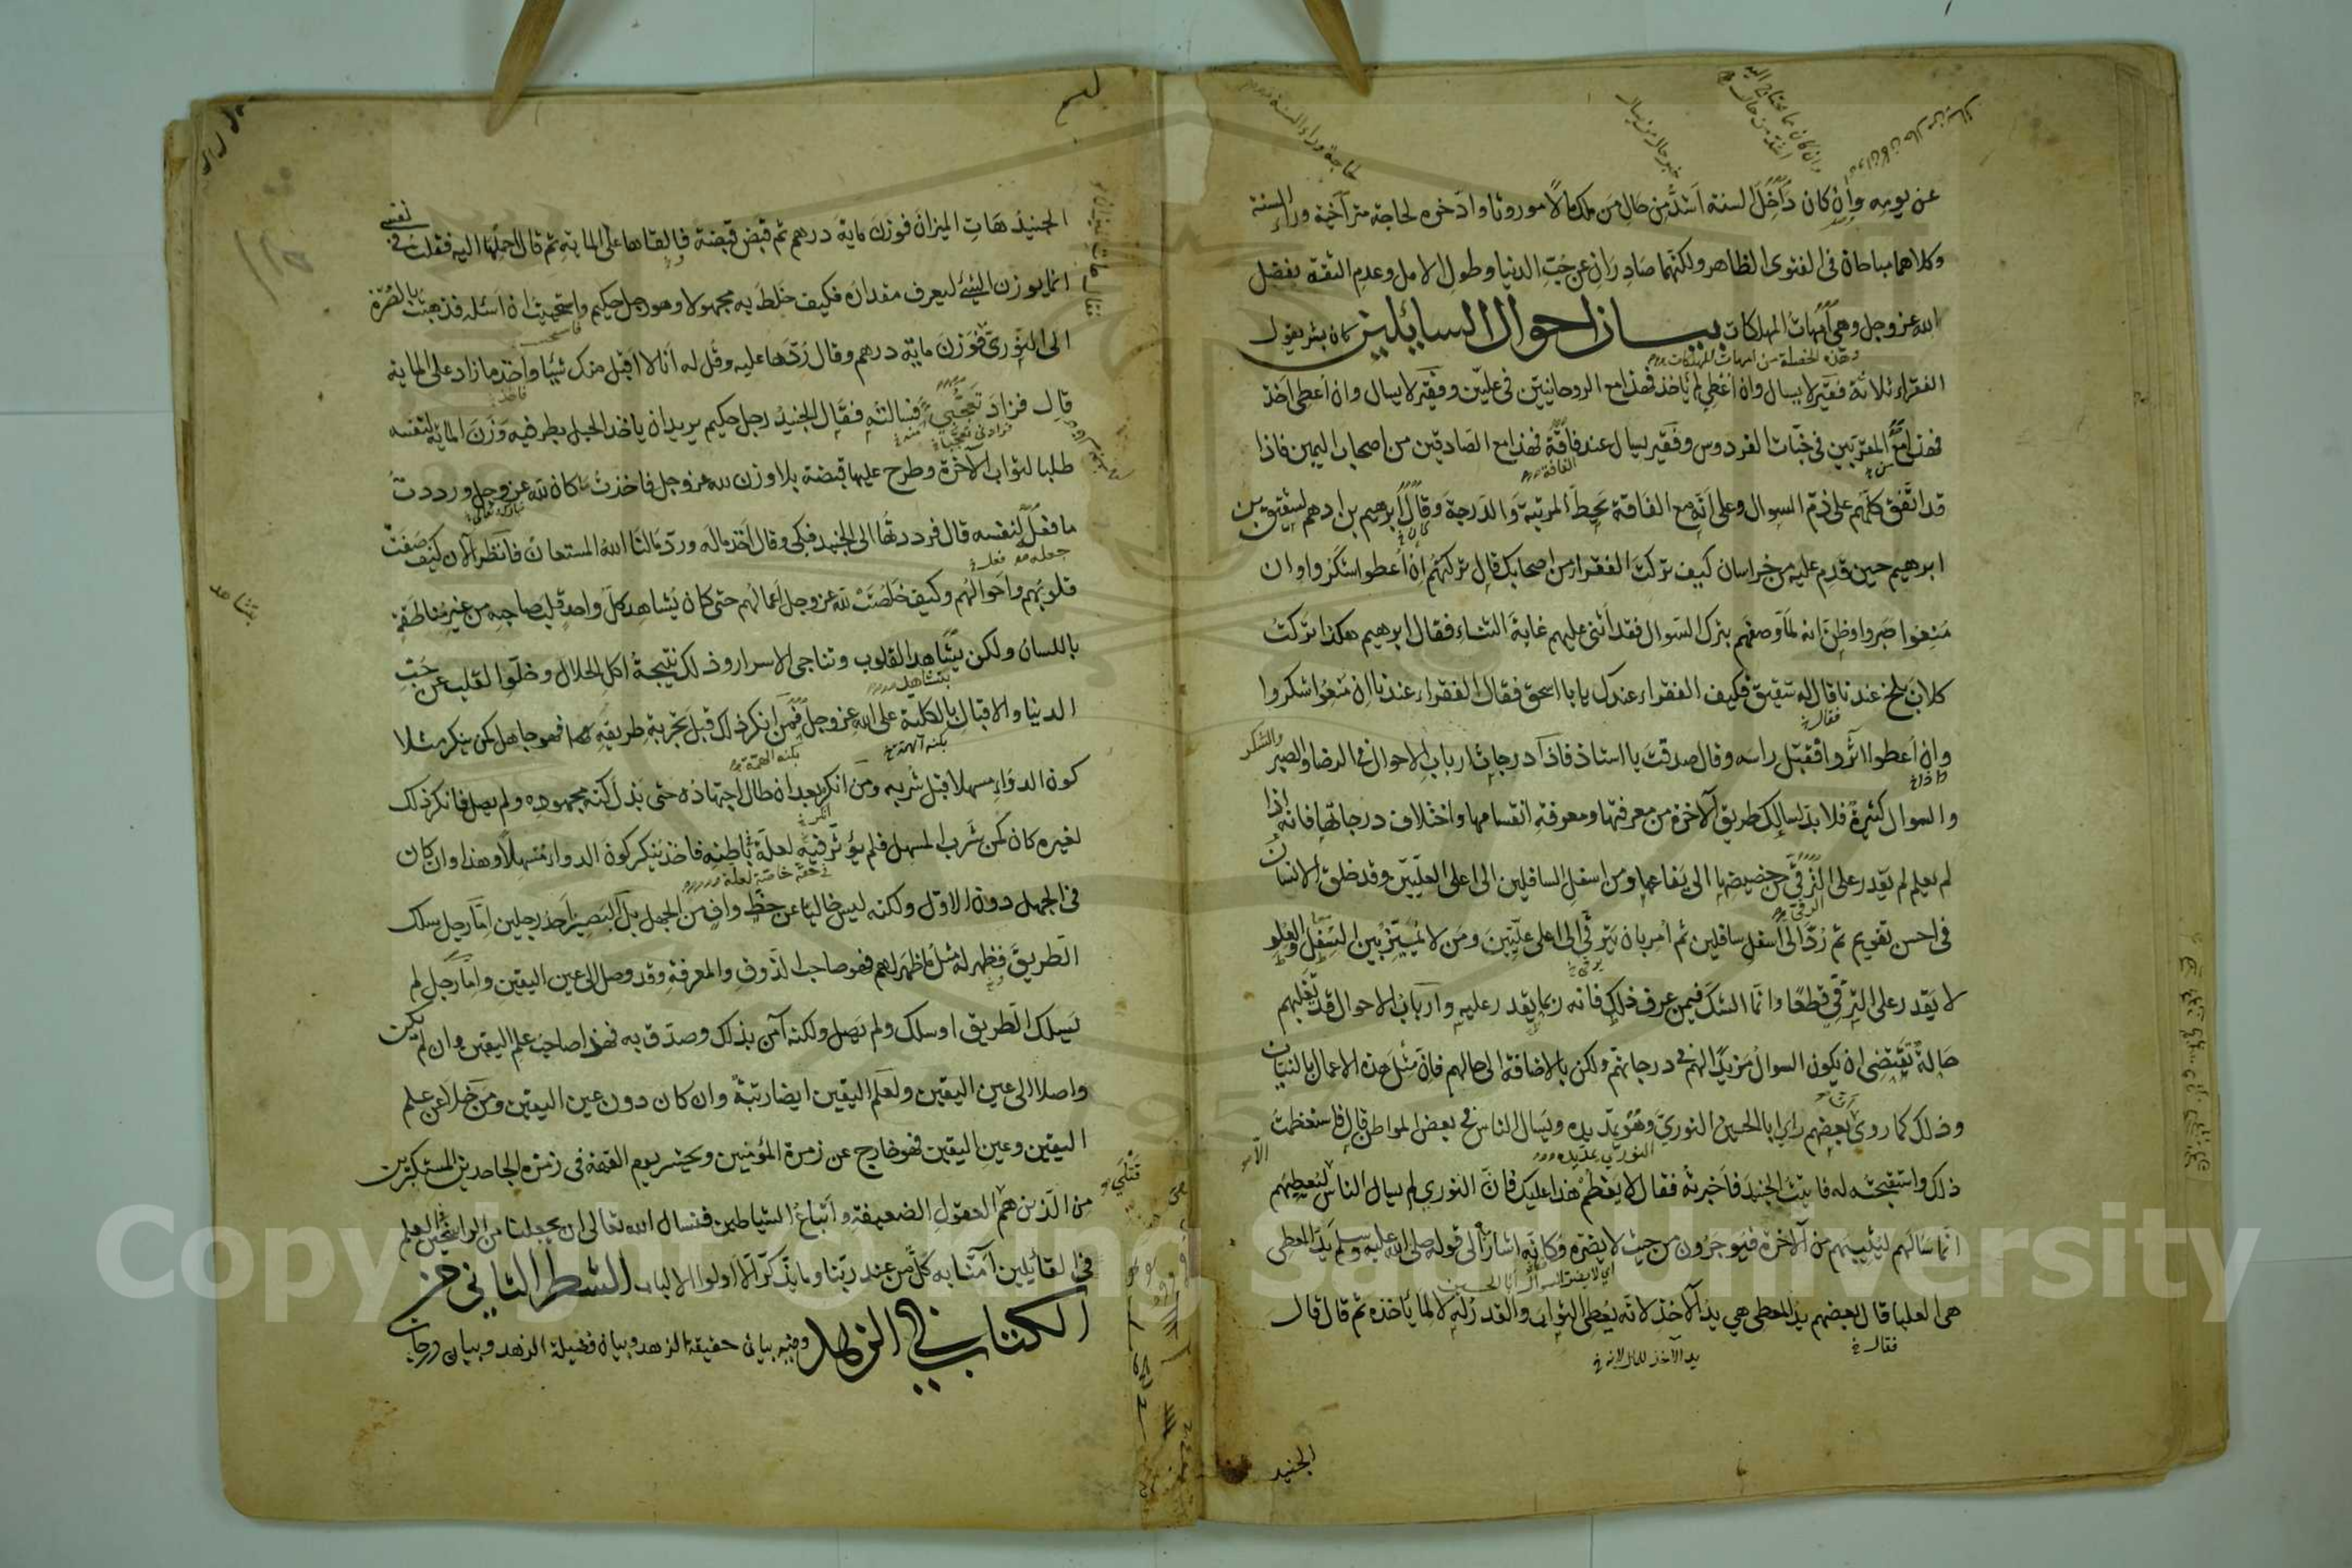 عن يومه وان كان داخل السنة اشد من حال من ملك مالا موروثا وادخره لحاجة متراخية وراء السنة
وكلاهما مباحان في الفتوى الظاهر ولكنهما صادران عن حب الدنيا وطول الامل وعدم الثقة بفضل
الله عز وجل وهي امهات المهلكات بيان احوال السايلين كان بشر يقول
وهذه الخصلة من امهات المهلكات
الفقراء ثلاثة فقير لا يسال وان أعطي لم ياخذ فهذا مع الروحانيين في عليين وفقير لا يسال وان اعطي اخذ
فهذا مع المقربين في جنات الفردوس وفقير يسال عند فاقة فهذا مع الصادقين من اصحاب اليمين فاذا
قد اتفق كلهم على ذم السوال وعلى انه مع الفاقة يحط المرتبة والدرجة وقال ابرهيم بن ادهم لشقيق بن
ابرهيم حين قدم عليه من خراسان كيف تركت الفقراء من اصحابك قال تركتهم ان أعطوا شكروا وان
منعوا صبروا وظن انه لما وصفهم بترك السوال فقد اثنى عليهم غاية الثناء فقال ابرهيم هكذا تركت
كلاب بلخ عندنا قال له شقيق فكيف الفقراء عندك يابا اسحق فقال الفقراء عندنا ان منعوا شكروا
وان أعطوا اثروا فقبل راسه وقال صدقت يا استاذ فاذا درجات ارباب الاحوال في الرضا والصبر والشكر
والسوال كثيرة فلا بد لسالك طريق الآخرة من معرفتها ومعرفة انقسامها واختلاف درجاتها فانه اذا
لم يعلم لم يقدر على الرقي من حضيضها الى يفاعها ومن اسفل السافلين الى اعلى العليين وقد خلق الانسان
في احسن تقويم ثم رد الى اسفل سافلين ثم أمر بان يترقى الى اعلى عليين ومن لا يميز بين السفل والعلو
لا يقدر على الترقي قطعا وانما الشك فيمن عرف ذلك فانه ربما يقدر عليه وارباب الاحوال قد تغلبهم
حالة تقتضي ان يكون السوال مزيدا لهم في درجاتهم ولكن بالاضافة الى حالهم فان مثل هذه الاعمال بالنيات
وذلك كما روي بعضهم راى ابا الحسين النوري وهو يمد يده ويسال الناس في بعض المواطن قال فاستعظمت
ذلك واستقبحته له فاتيت الجنيد فاخبرته فقال لا يعظم هذا عليك فان النوري لم يسال الناس الا ليعطيهم
انما سالهم ليثيبهم من الآخرة فيوجرون من حيث لا يضره وكانه اشار الى قوله صلى الله عليه وسلم يد المعطي
هي العليا قال بعضهم يد المعطي هي يد الآخذ لانه يعطي الثواب والقدر له لا لما ياخذه ثم قال قال
فقال
يد الآخذ للمال لانه
الجنيد
الجنيد هات الميزان فوزن ماية درهم ثم قبض قبضة فالقاها على الماية ثم قال احملها اليه فقلت في نفسي
انما يوزن الشيء ليعرف مقداره فكيف خلط به مجهولا وهو رجل حكيم واستحييت ان اسئله فذهبت بالصرة
الى النوري فوزن ماية درهم وقال ردها عليه وقل له انا لا اقبل منك شيئا واخذ ما زاد على الماية
قال فزاد تعجبي فسالته فقال الجنيد رجل حكيم يريد ان ياخذ الحبل بطرفيه وزن الماية لنفسه
طلبا لثواب الآخرة وطرح عليها قبضة بلا وزن لله عز وجل فاخذت ما كان لله عز وجل ورددت
ما فعل لنفسه قال فرددتها الى الجنيد فبكى وقال اخذ ماله ورد مالنا الله المستعان فانظر الآن كيف صفت
قلوبهم واحوالهم وكيف خلصت لله عز وجل اعمالهم حتى كان يشاهد كل واحد قلب صاحبه من غير مناطقة
باللسان ولكن بتشاهد القلوب وتناجي الاسرار وذلك نتيجة اكل الحلال وخلو القلب عن حب
الدنيا والاقبال بالكلية على الله عز وجل فمن انكر ذلك قبل تجربة طريقه فهو جاهل كمن ينكر مثلا
كون الدواء مسهلا قبل شربه ومن انكره بعد ان طال اجتهاده حتى بذل كنه مجهوده ولم يصل فانكر ذلك
لغيره كان كمن شرب المسهل فلم يؤثر فيه لعلة في باطنه فاخذ ينكر كون الدواء مسهلا وهذا وان كان
في الجهل دون الاول ولكنه ليس خاليا عن حظ واف من الجهل بل البصير احد رجلين اما رجل سلك
الطريق فظهر له مثل ما ظهر لهم فهو صاحب الذوق والمعرفة وقد وصل الى عين اليقين واما رجل لم
يسلك الطريق او سلك ولم يصل ولكنه آمن بذلك وصدق به فهذا صاحب علم اليقين وان لم يكن
واصلا الى عين اليقين ولعلم اليقين ايضا رتبة وان كان دون عين اليقين ومن خلا عن علم
اليقين وعين اليقين فهو خارج عن زمرة المؤمنين ويحشر يوم القيمة في زمرة الجاحدين المستكبرين
من الذين هم العقول الضعيفة واتباع الشياطين فنسال الله تعالى ان يجعلنا من الراسخين في العلم
القائلين آمنا به كل من عند ربنا وما يذكر الا اولوا الالباب الشطر الثاني من
الكتاب في الزهد وفيه بيان حقيقة الزهد وبيان فضيلة الزهد وبيان درجات
Copyright © King Saud University